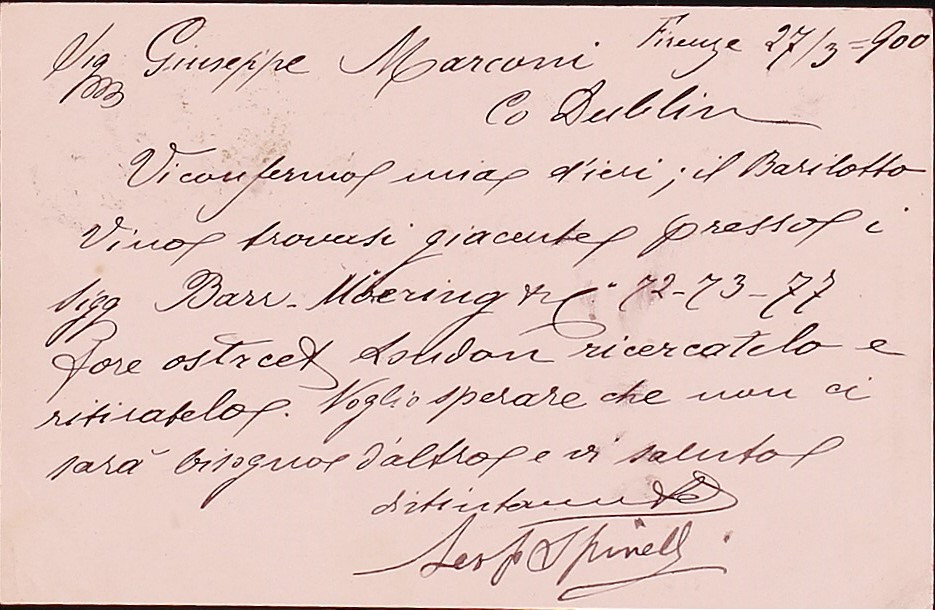 Sig Giuseppe Marconi Firenze 27/3=900
Co Dublin
Vi confermo mia d'ieri; il Barilotto
Vino trovasi giacente presso i
Sigg Barr-Moering & C° 72-73-77
Fore ostreet London ricercatelo e
ritiratelo. Voglio sperare che non ci
sarà bisogno d'altro e vi saluto
distintamente
Spinelli